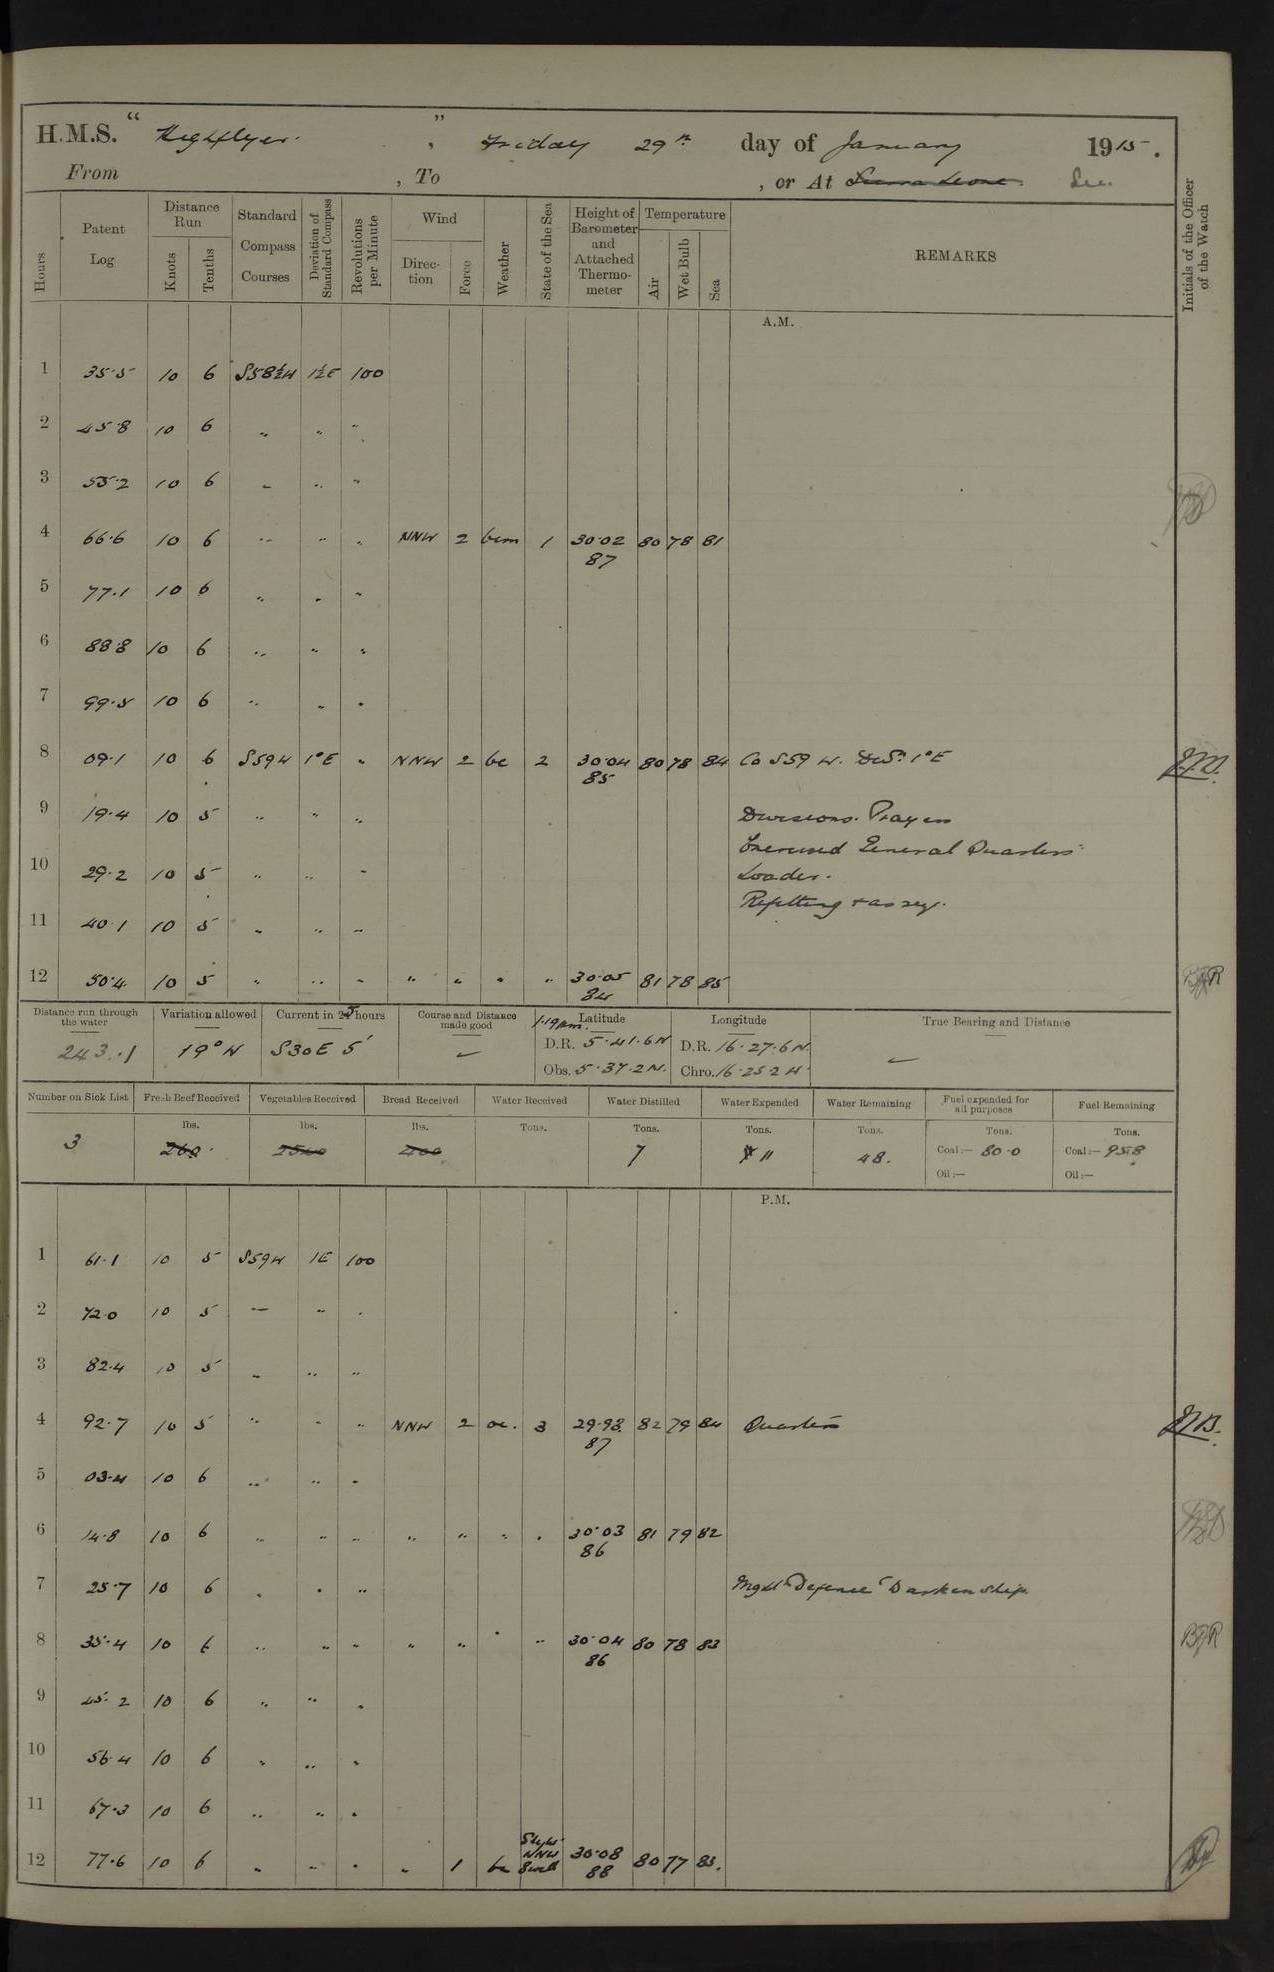 H.M.S. "Highflyer.", Friday 29th day of January 1915.
From , To , or At Sierra Leone. Sea.
Hours Patent Log Distance Run Knots Tenths Standard Compass Courses Deviation of Standard Compass Revolutions per Minute Wind Direction Force Weather State of the Sea Height of Barometer and Attached Thermometer Temperature Air Wet Bulb Sea REMARKS Initials of the Officer of the Watch
A.M.
1 35.5 10 6 S58½W 1½E 100
2 45.8 10 6 " " "
3 55.2 10 6 " " "
4 66.6 10 6 " " " NNW 2 bcm 1 30.02 80 78 81
87
5 77.1 10 6 " " "
6 88.8 10 6 " " "
7 99.5 10 6 " " "
8 09.1 10 6 S59W 1°E " NNW 2 bc 2 30.04 80 78 84 Co S59 W. Devn. 1°E
85
9 19.4 10 5 " " " Divisions. Prayers
Exercised General Quarters
10 29.2 10 5 " " " Loader.
Refitting + as req.
11 40.1 10 5 " " "
12 50.4 10 5 " " " " " " " 30.05 81 78 85 BJR
84
Distance run through the water Variation allowed Current in 25 hours Course and Distance made good Latitude Longitude True Bearing and Distance
1.19am.
243.1 19°W S30E 5' D.R. 5.41.6N D.R. 16.27.6N.
Obs. 5.37.2N. Chro. 16.25.2W
Number on Sick List Fresh Beef Received Vegetables Received Bread Received Water Received Water Distilled Water Expended Water Remaining Fuel expended for all purposes Fuel Remaining
lbs. lbs. lbs. Tons. Tons. Tons. Tons. Tons. Tons.
3 260 2500 400 7 11 48. Coal:— 80.0 Coal:— 958
Oil:— Oil:—
P.M.
1 61.1 10 5 S59W 1E 100
2 72.0 10 5 — " "
3 82.4 10 5 " " "
4 92.7 10 5 " " " NNW 2 oc. 3 29.98 82 79 84 Quarters
87
5 03.4 10 6 " " "
6 14.8 10 6 " " " " " " " 30.03 81 79 82
86
7 25.7 10 6 " " " Night Defence Darken Ship.
8 35.4 10 6 " " " " " " " 30.04 80 78 83 BJR
86
9 45.2 10 6 " " "
10 56.4 10 6 " " "
11 67.3 10 6 " " "
12 77.6 10 6 " " " " 1 bc NNW Swell 30.08 80 77 83.
88